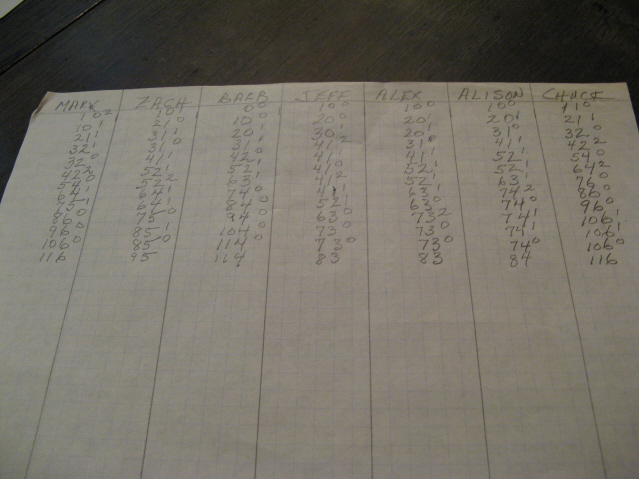 MARK ZACH BARB JEFF ALEX ALISON CHUCK
10² 10¹ 0⁰ 10⁰ 10⁰ 10⁰ 11⁰
10¹ 21⁰ 10⁰ 20⁰ 20¹ 20¹ 21¹
21¹ 31¹ 20¹ 30¹ 20¹ 31⁰ 32⁰
32¹ 31⁰ 31⁰ 41² 31⁰ 41¹ 42²
32⁰ 41¹ 42⁰ 41¹ 41¹ 52¹ 54⁰
42² 52¹ 52¹ 41¹ 52¹ 52¹ 64²
54⁰ 52² 63¹ 41² 52¹ 63¹ 76⁰
64¹ 74⁰ 63¹ 74² 86⁰
75¹ 64¹ 84⁰ 52¹ 63⁰ 74⁰ 96⁰
86⁰ 75⁰ 94⁰ 63⁰ 73² 74¹ 106¹
96⁰ 85¹ 104⁰ 73⁰ 73⁰ 74¹ 106¹
106⁰ 85⁰ 114⁰ 73⁰ 73⁰ 74⁰ 106⁰
116 95 114 83 83 84 116